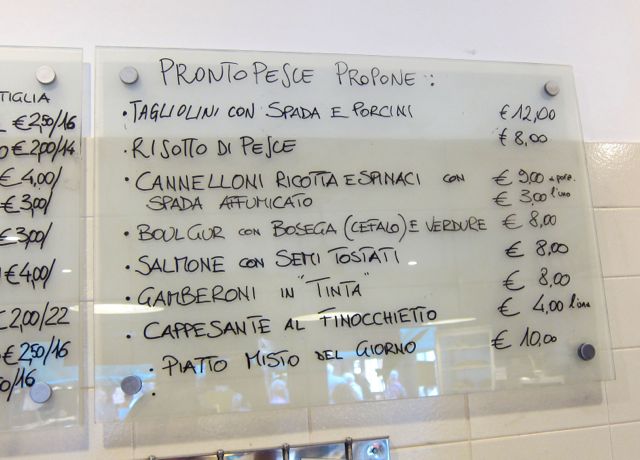 TIGLIA
€ 2,50/16
€ 2,00/14
€ 4,00/
€ 3,00/
€ 3,00/
€ 4,00/
€ 2,00/22
€ 2,50/16
/16
PRONTOPESCE PROPONE:
• TAGLIOLINI CON SPADA E PORCINI € 12,00
• RISOTTO DI PESCE € 8,00
• CANNELLONI RICOTTA E SPINACI CON € 9,00
SPADA AFFUMICATO € 3,00 l'uno
• BOULGUR CON BOSEGA (CEFALO) E VERDURE € 8,00
• SALMONE CON SEMI TOSTATI € 8,00
• GAMBERONI IN "TINTA" € 8,00
• CAPPESANTE AL FINOCCHIETTO € 4,00 l'una
• PIATTO MISTO DEL GIORNO € 10,00
•